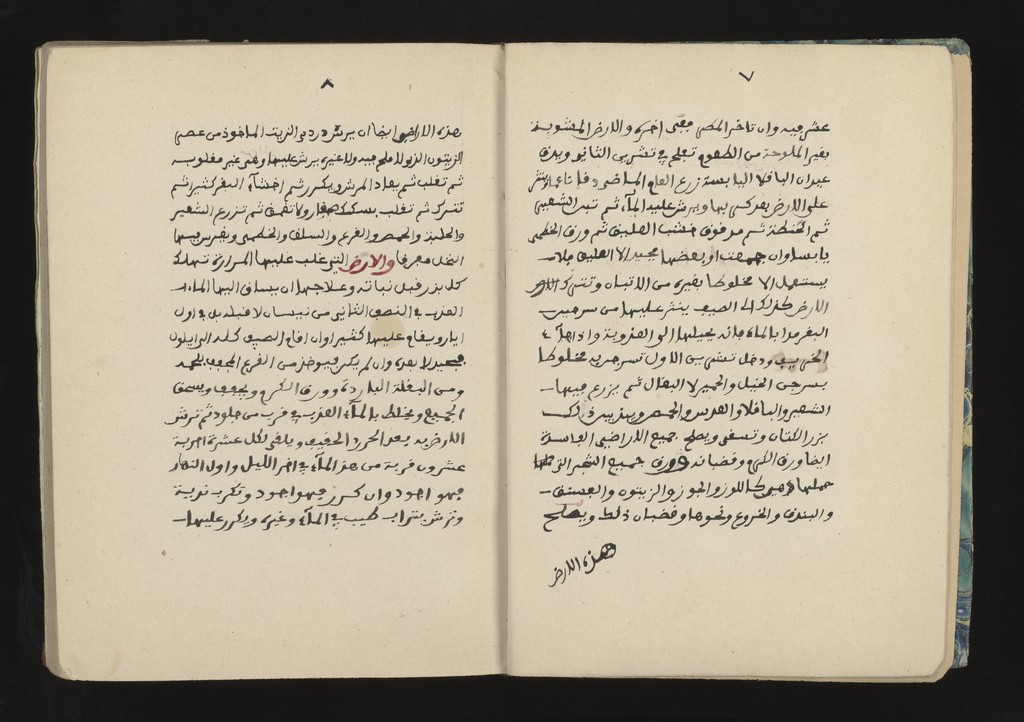 ٧
عشر فيه وان تاخر المطر ففى اخره والارض المشوبة
بغير الملوحة من الطعوم تفلح في تشرين الثاني ويدق
عيدان الباقلا اليابسة زرع العام الماضى دقا ناعما وتنثر
على الارض بعد كسر بها ويرش عليه الماء ثم تبن الشعير
ثم الحنطة ثم مدقوق خشب العليق ثم ورق الخطمى
يابسا وان جمعت او بعضها فجيد الا العليق فلا
يستعمل الا مخلوطا بغيره من الاتبان وتترك
الارض كذلك الى الصيف ينثر عليها من سرجين
البقر مدا بالماء فانه يحيلها الى العذوبة واذا جاء
الخريف ودخل تشرين الاول تسرجن به مخلوطا
بسرجين الخيل والحمير لا البغال ثم يزرع فيها
الشعير والباقلا والعدس والحمص ويبذر بين ذلك
بزر الكتان وتسقى ويصلح جميع الاراضى الفاسدة
ايضا ورق الكرم وقضبانه وورق جميع الشجر التى
حملها دهين كاللوز والجوز والزيتون والفستق
والبندق والخروع ونحوها وقضبان ذلك ويصلح
هذه الارض
٨
هذه الاراضى ايضا ان يرش دردى الزيت الماخوذ من عصير
الزيتون الذى لا ملح فيه ولا غيره يرش عليها وهى غير مقلوبه
ثم تقلب ثم يعاد المرش ويكرر ثم اخثاء البقر كثيرا ثم
تترك ثم تقلب بسكك صغار ولا تعمق ثم تزرع الشعير
والحلبة والحمص والقرع والسلق والخطمى ويغرس فيها
النخل مفرقا والارض التى غلب عليها المرارة تهلك
كل بزر قبل نباته وعلاجها ان يساق اليها الماء
العذب فى النصف الثانى من نيسان لا قبله بل فى اول
ايار ويقام عليها كثيرا وان اقام الصيف كله الى ايلول
فجيد لا بعده وان لم يكن فيوخذ من القرع المجفف
ومن البقلة الباردة وورق الكرم ويجفف ويسحق
الجميع ويخلط بالماء العذب فى قرب من جلود ثم ترش
الارض به بعد الحرث الخفيف ويلقى لكل عشرة اجربة
عشرون قربة من هذا الماء فى اخر الليل واول النهار
فهو اجود وان كرر فهو اجود وتكرب ندية
وترش بتراب طيب فى الماء وغيره ويكرر عليها